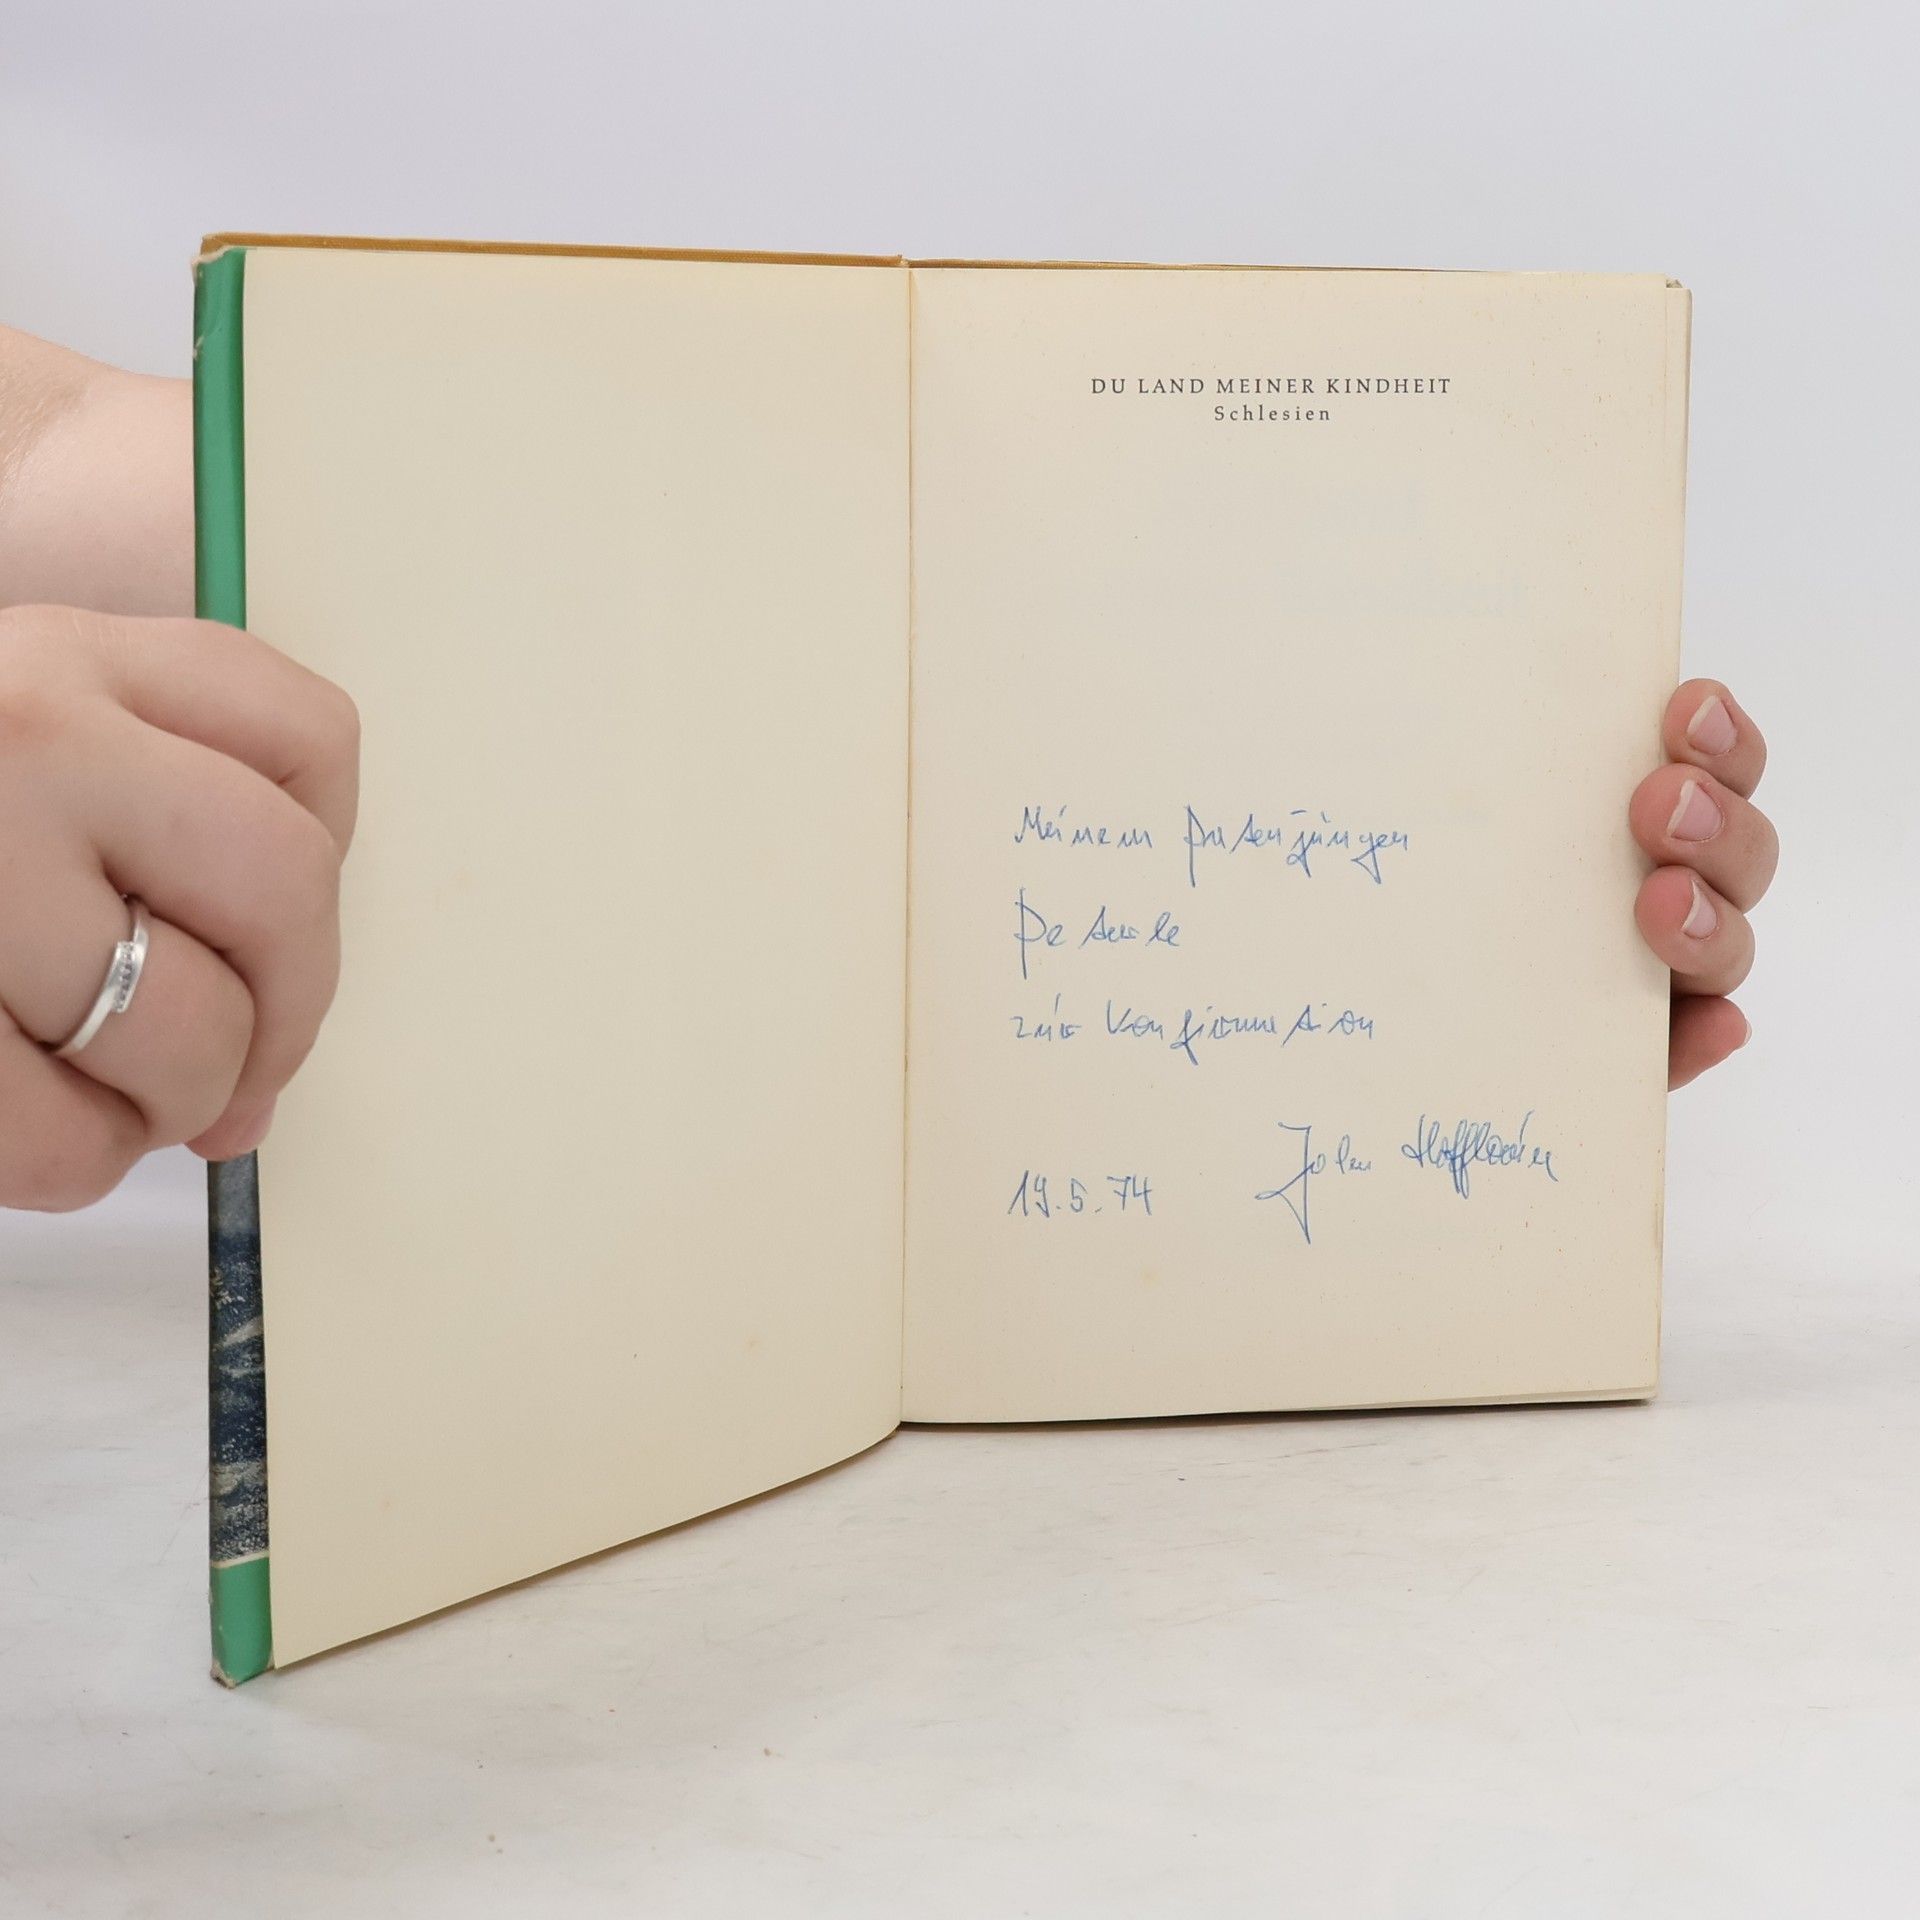 DU LAND MEINER KINDHEIT
Schlesien
Meinem Patenjungen
Peterle
zur Konfirmation
19.5.74 John